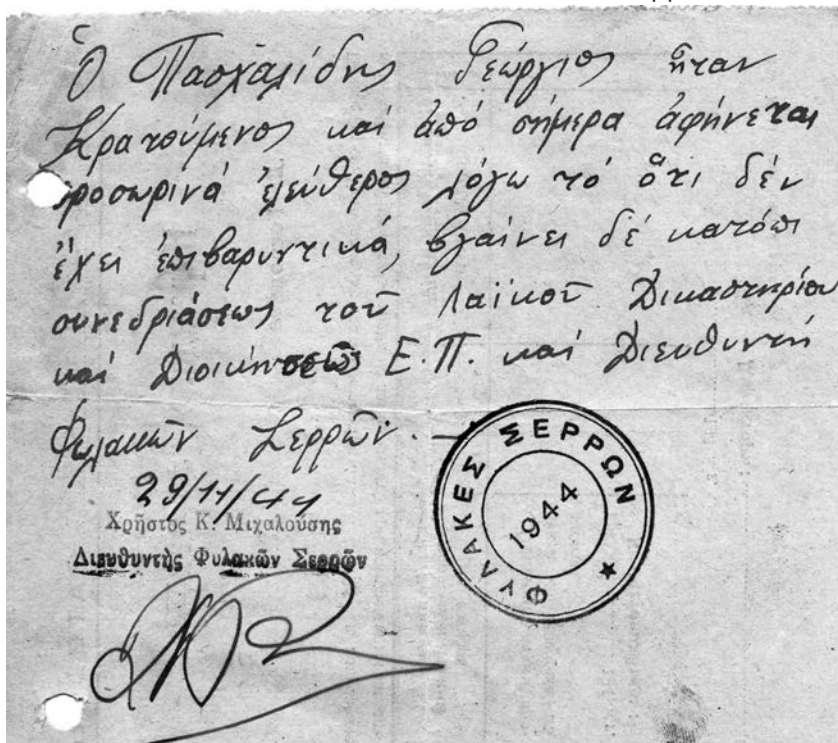 Ὁ Πασχαλίδης Γεώργιος ἦταν
Κρατούμενος καί ἀπό σήμερα ἀφήνεται
προσωρινά ἐλεύθερος λόγω τό ὅτι δέν
ἔχει ἐπιβαρυντικά, βγαίνει δέ κατόπι
συνεδριάσεως τοῦ Λαϊκοῦ Δικαστηρίου
καί Διοικήσεως Ε.Π. καί Διευθυντή
Φυλακῶν Σερρῶν.—
29/11/44
Χρῆστος Κ. Μιχαλούσης
Διευθυντὴς Φυλακῶν Σερρῶν
ΦΥΛΑΚΕΣ ΣΕΡΡΩΝ
1944